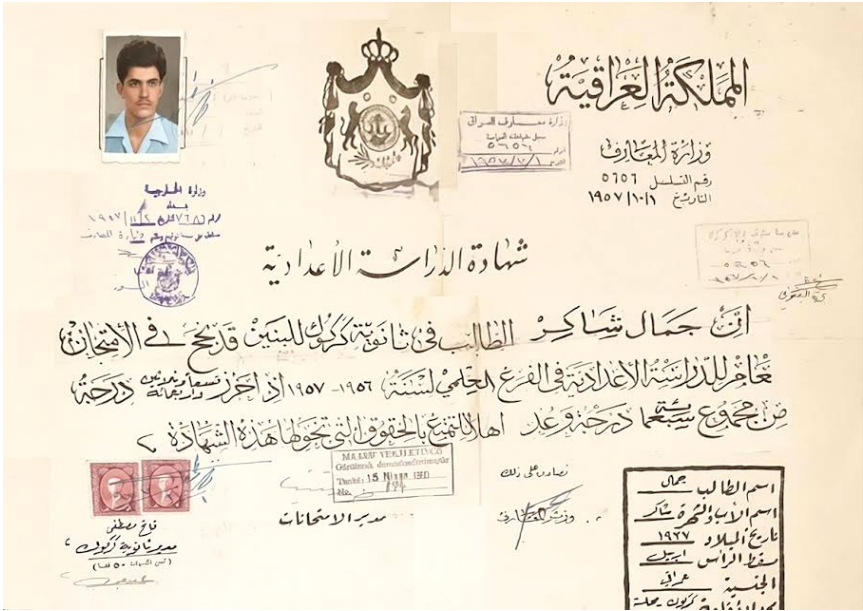 المملكة العراقية
وزارة المعارف
رقم التسلسل ٥٦٥٦
التاريخ ١٩٥٧/١٠/١
وزارة معارف العراق
٥٦٥٦
وزارة الخارجية
بغداد
وزارة المعارف
شهادة الدراسة الأعدادية
ان جمال شاكر الطالب في ثانوية كركوك للبنين قد نجح في الأمتحان
العام للدراسة الأعدادية في الفرع العلمي لسنة ١٩٥٦-١٩٥٧ اذ احرز تسعا وثلاثين واربعمائة درجة
من مجموع سبعمائة درجة وعد اهلا للتمتع بالحقوق التي تخولها هذه الشهادة
MAARİF VEKALETİNCE
Görülerek
Tarih: 15 Nisan
No.
نصادق على ذلك
وزير المعارف
مدير الامتحانات
فاتح مصطفى
مدير ثانوية كركوك
اسم الطالب جمال
اسم الأب والشهرة شاكر
تاريخ الميلاد ١٩٣٧
مسقط الرأس اربيل
الجنسية عراقي